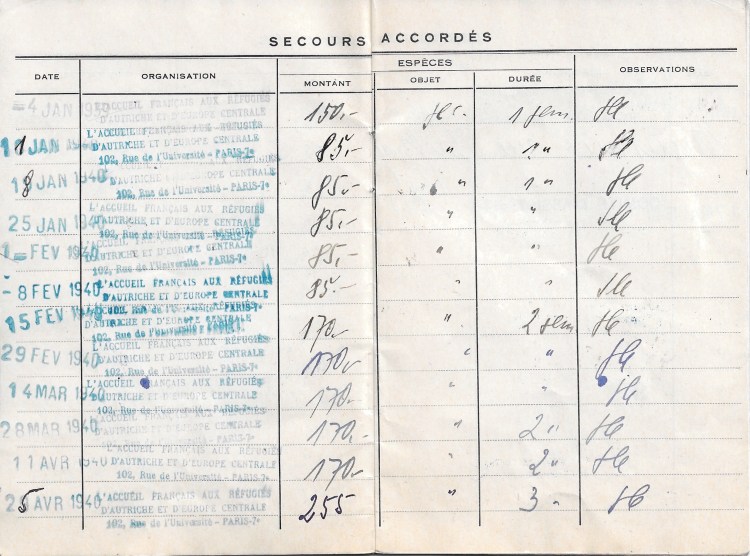 SECOURS ACCORDÉS
DATE ORGANISATION MONTÁNT ESPÈCES OBJET DURÉE OBSERVATIONS
- 4 JAN 1939 L'ACCUEIL FRANÇAIS AUX RÉFUGIÉS 150.- 1 sem.
D'AUTRICHE ET D'EUROPE CENTRALE
11 JAN 1940 L'ACCUEIL FRANÇAIS AUX RÉFUGIÉS 85.- " 1 "
D'AUTRICHE ET D'EUROPE CENTRALE
102, Rue de l'Université - PARIS-7e
18 JAN 1940 85.- " 1 "
D'AUTRICHE ET D'EUROPE CENTRALE
102, Rue de l'Université - PARIS-7e
25 JAN 1940 L'ACCUEIL FRANÇAIS AUX RÉFUGIÉS 85.- " "
D'AUTRICHE ET D'EUROPE CENTRALE
102, Rue de l'Université - PARIS-7e
1 = FEV 1940 L'ACCUEIL FRANÇAIS AUX RÉFUGIÉS 85.- " "
D'AUTRICHE ET D'EUROPE CENTRALE
102, Rue de l'Université - PARIS-7e
- 8 FEV 1940 L'ACCUEIL FRANÇAIS AUX RÉFUGIÉS 85.- " "
D'AUTRICHE ET D'EUROPE CENTRALE
15 FEV 1940 170.- " 2 sem
D'AUTRICHE ET D'EUROPE CENTRALE
102, Rue de l'Université
29 FEV 1940 L'ACCUEIL FRANÇAIS AUX RÉFUGIÉS 170.- " "
D'AUTRICHE ET D'EUROPE CENTRALE
102, Rue de l'Université - PARIS-7e
14 MAR 1940 L'ACCUEIL FRANÇAIS AUX RÉFUGIÉS 170.-
D'AUTRICHE ET D'EUROPE CENTRALE
102, Rue de l'Université - PARIS-7e
28 MAR 1940 L'ACCUEIL FRANÇAIS AUX RÉFUGIÉS 170.- " 2 "
D'AUTRICHE ET D'EUROPE CENTRALE
102, Rue de l'Université - PARIS-7e
11 AVR 1940 L'ACCUEIL FRANÇAIS AUX RÉFUGIÉS 170.- " 2 "
D'AUTRICHE ET D'EUROPE CENTRALE
102, Rue de l'Université - PARIS-7e
25 AVR 1940 L'ACCUEIL FRANÇAIS AUX RÉFUGIÉS 255 " 3 "
D'AUTRICHE ET D'EUROPE CENTRALE
102, Rue de l'Université - PARIS-7e